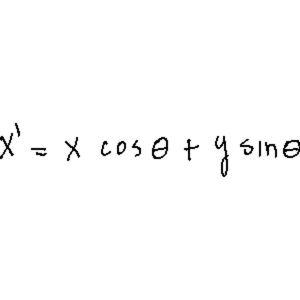 x' = x cosθ + y sinθ